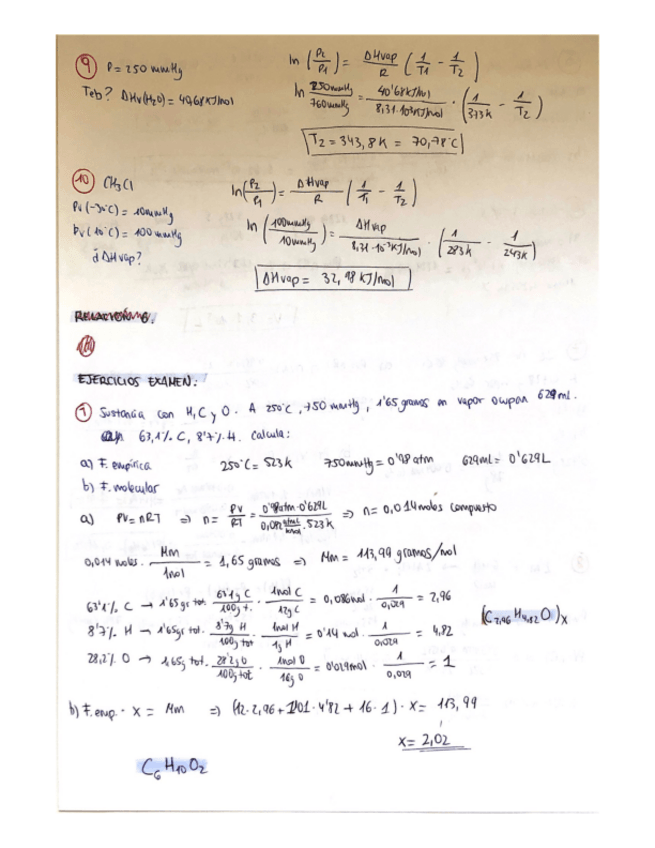 9 P = 250 mmHg
Teb? ΔHv(H2O) = 40,68 KJ/mol
ln (P2/P1) = ΔHvap/R (1/T1 - 1/T2)
ln 250mmHg/760mmHg = 40'68 KJ/mol / 8,31·10-3 KJ/mol · (1/373K - 1/T2)
T2 = 343,8 K = 70,78°C
10 CH3Cl
Pv (-30°C) = 10mmHg
Pv (10°C) = 100 mmHg
d ΔHvap?
ln (P2/P1) = ΔHvap/R (1/T1 - 1/T2)
ln (100mmHg/10mmHg) = ΔHvap / 8,31·10-3KJ/mol · (1/283K - 1/243K)
ΔHvap = 32,98 KJ/mol
RELACIÓN 6.
EJERCICIOS EXAMEN:
1 Sustancia con H, C y O. A 250°C, 750 mmHg, 1'65 gramos en vapor ocupan 629 mL.
63,1% C, 8'7% H. Calcula:
a) F. empírica 250°C = 523 K 750mmHg = 0'98 atm 629mL = 0'629L
b) F. molecular
a) PV = nRT ⇒ n = PV/RT = 0'98atm·0'629L / 0,082 atmL/Kmol · 523K ⇒ n = 0,014 moles compuesto
0,014 moles · Mm/1mol = 1,65 gramos ⇒ Mm = 113,99 gramos/mol
63'1% C → 1'65gr tot. 63'1g C/100g t. · 1mol C/12g C = 0,086mol · 1/0,029 = 2,96
8'7% H → 1'65gr tot. 8'7g H/100g tot · 1mol H/1g H = 0'14 mol · 1/0,029 = 4,82
28,2% O → 1,65g tot. 28'2g O/100g tot · 1mol O/16g O = 0'029mol · 1/0,029 = 1
(C2,96 H4,82 O)x
b) F. emp. · x = Mm ⇒ (12·2,96 + 1'01·4'82 + 16·1) · x = 113,99
x = 2,02
C6 H10 O2